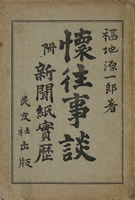 福地源一郎著
懷往事談
附新聞紙實歷
民友社出版